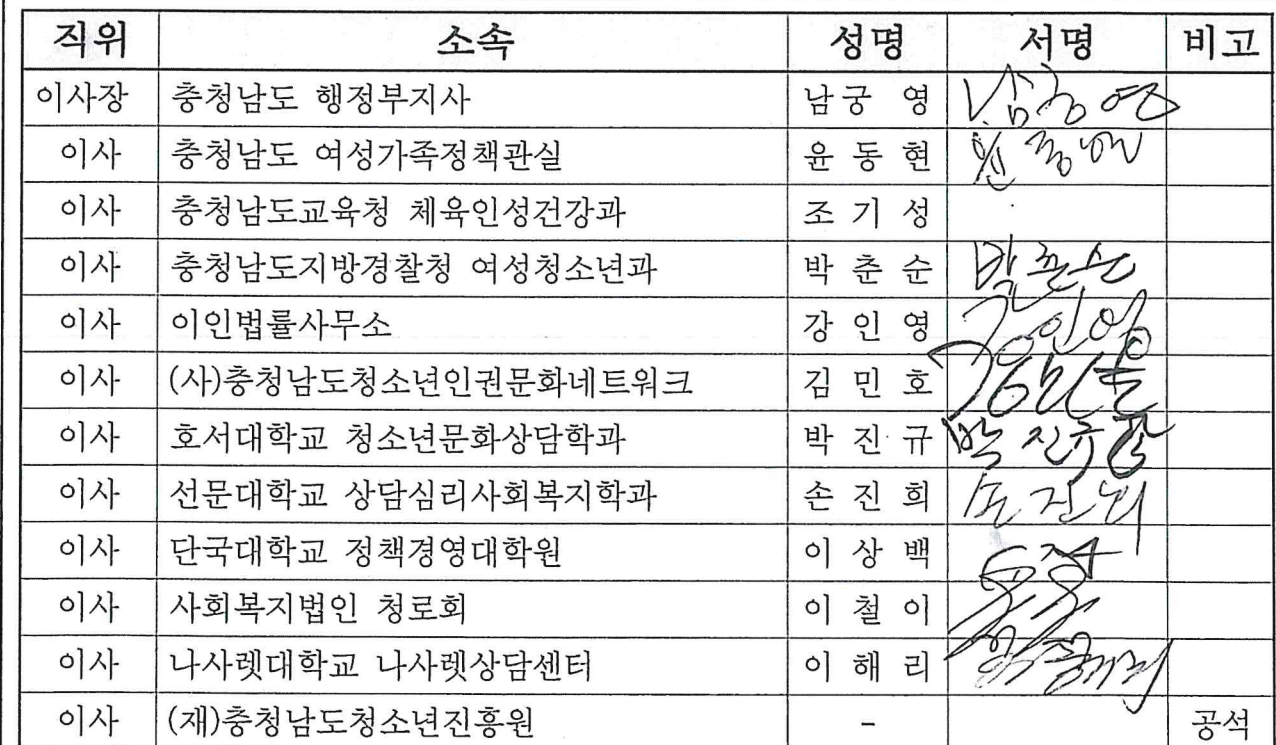 직위 소속 성명 서명 비고
이사장 충청남도 행정부지사 남궁 영 남궁영
이사 충청남도 여성가족정책관실 윤 동 현
이사 충청남도교육청 체육인성건강과 조 기 성
이사 충청남도지방경찰청 여성청소년과 박 춘 순 박춘순
이사 이인법률사무소 강 인 영 강인영
이사 (사)충청남도청소년인권문화네트워크 김 민 호
이사 호서대학교 청소년문화상담학과 박 진 규 박진규
이사 선문대학교 상담심리사회복지학과 손 진 희 손진희
이사 단국대학교 정책경영대학원 이 상 백
이사 사회복지법인 청로회 이 철 이
이사 나사렛대학교 나사렛상담센터 이 해 리
이사 (재)충청남도청소년진흥원 - 공석